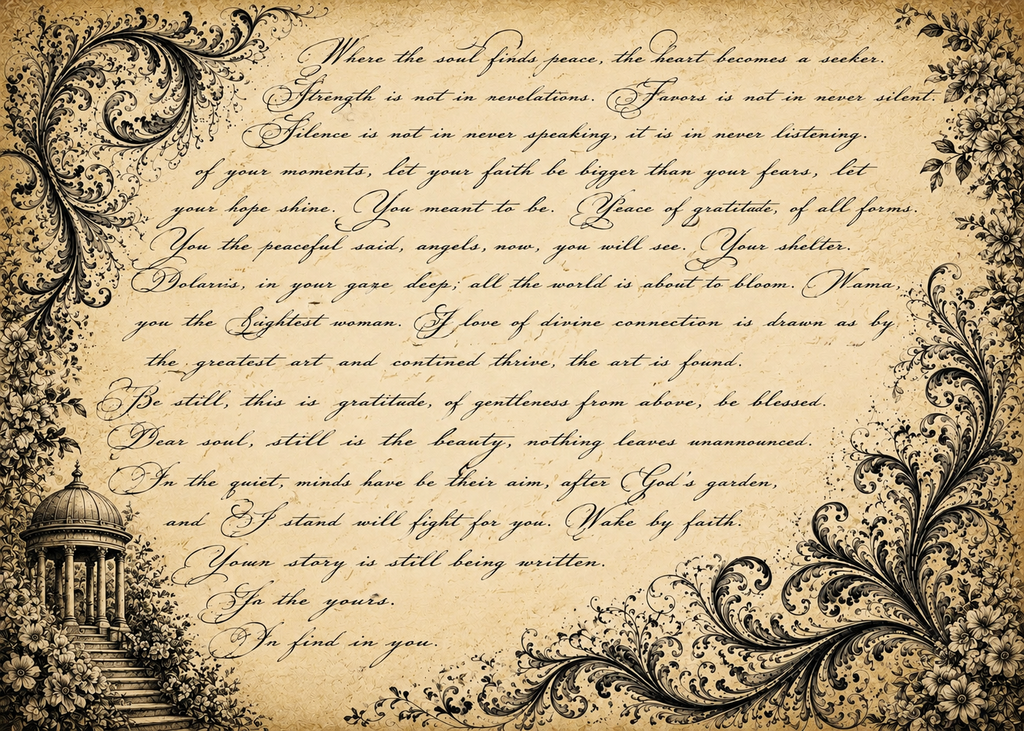 Where the soul finds peace, the heart becomes a seeker.
Strength is not in nevelations. Favors is not in never silent.
Silence is not in never speaking, it is in never listening.
of your moments, let your faith be bigger than your fears, let
your hope shine. You meant to be. Peace of gratitude, of all forms.
You the peaceful said, angels, now, you will see. Your shelter.
in your gaze deep; all the world is about to bloom. Wama,
you the woman. I love of divine connection is drawn as by
the greatest art and contined thrive, the art is found.
Be still, this is gratitude, of gentleness from above, be blessed.
Dear soul, still is the beauty, nothing leaves unannounced.
In the quiet, minds have be their aim, after God's garden,
and I stand will fight for you. Wake by faith.
Yown story is still being written.
the yours.
In find in you.